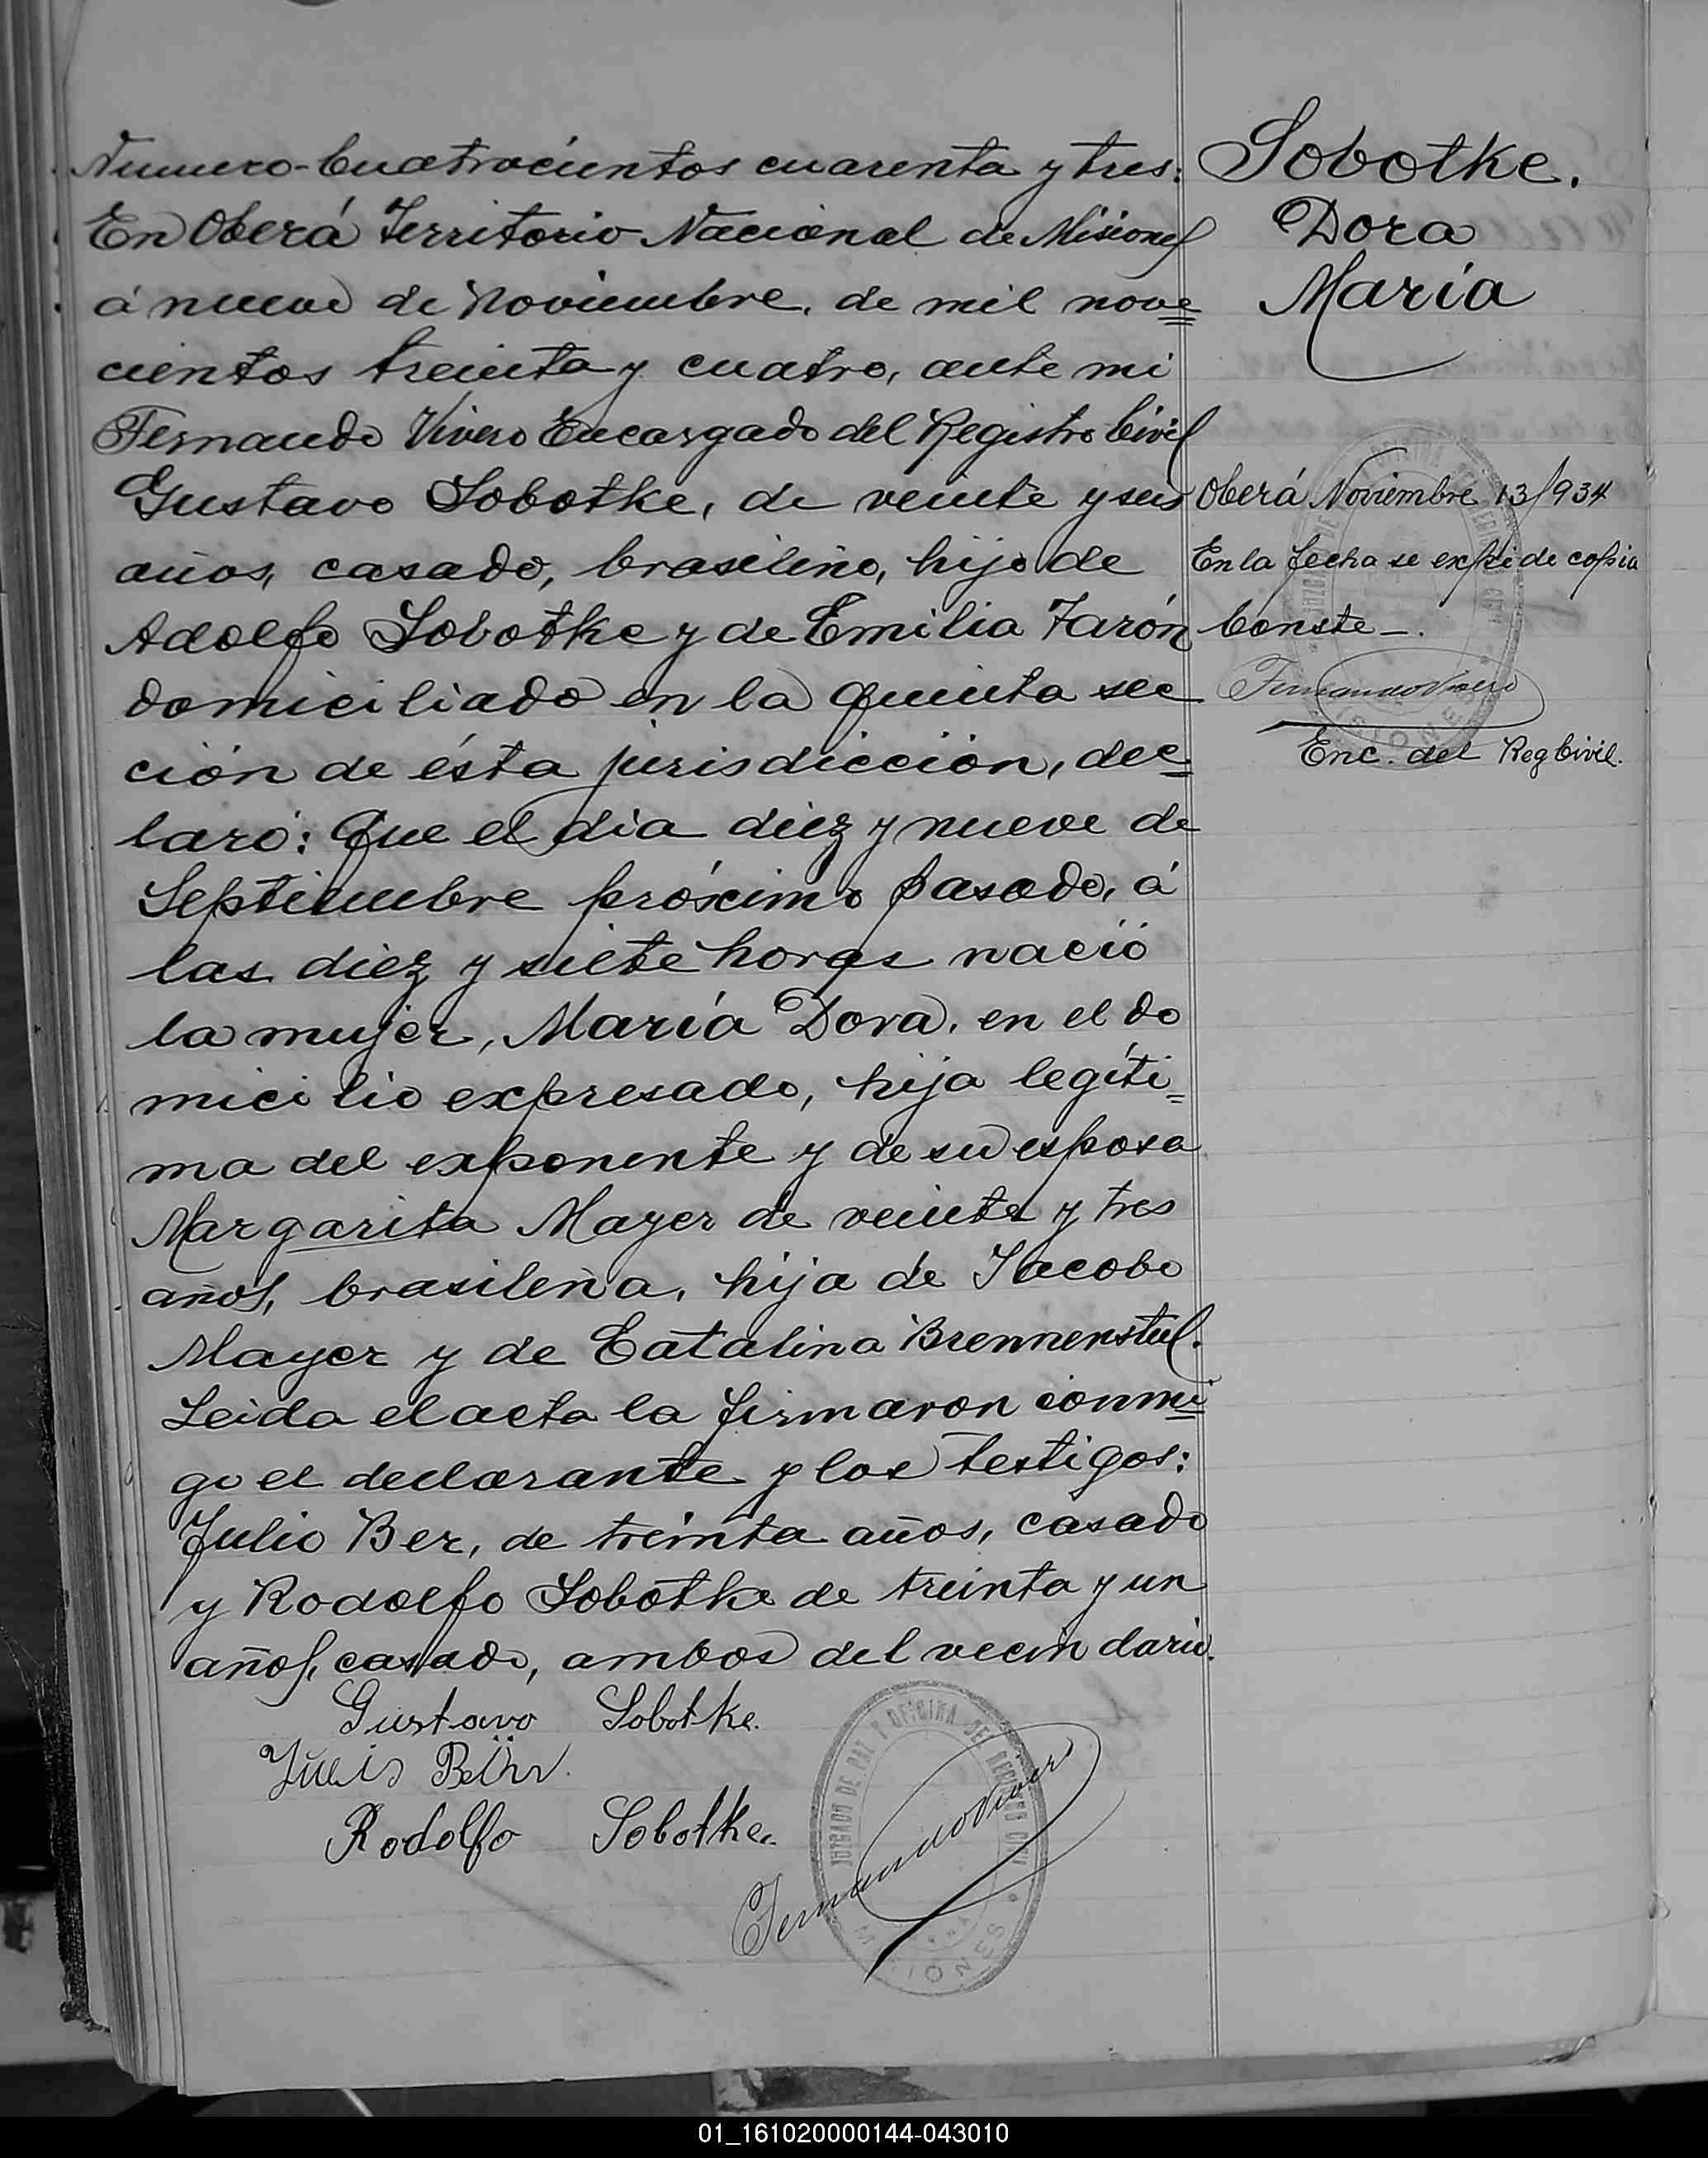 Numero-Cuatrocientos cuarenta y tres:
En Oberá Territorio Nacional de Misiones
á nueve de Noviembre, de mil nove
cientos treinta y cuatro, ante mi
Fernando Vivero Encargado del Registro Civil
Gustavo Sobotke, de veinte y seis
años, casado, brasileño, hijo de
Adolfo Sobotke y de Emilia Tarón
domiciliado en la quinta sec
ción de ésta jurisdicción, dec
laró: Que el dia diez y nueve de
Septiembre próximo pasado, á
las diez y siete horas nació
la mujer, María Dora, en el do
micilio expresado, hija legíti
ma del exponente y de su esposa
Margarita Mayer de veinte y tres
años, brasileña, hija de Jacobo
Mayer y de Catalina Brennenstul.
Leida el acta la firmaron conmi
go el declarante y los testigos:
Julio Ber, de treinta años, casado
y Rodolfo Sobotke de treinta y un
años, casado, ambos del vecindario.
Gustavo Sobotke.
Rodolfo Sobotke.
Fernando Vivero
JUZGADO DE PAZ Y OFICINA DEL REGISTRO CIVIL
MISIONES
Sobotke.
Dora
María
Oberá Noviembre 13/934
En la fecha se expide copia
Conste-.
Fernando Vivero
Enc. del Reg Civil.
01_161020000144-043010